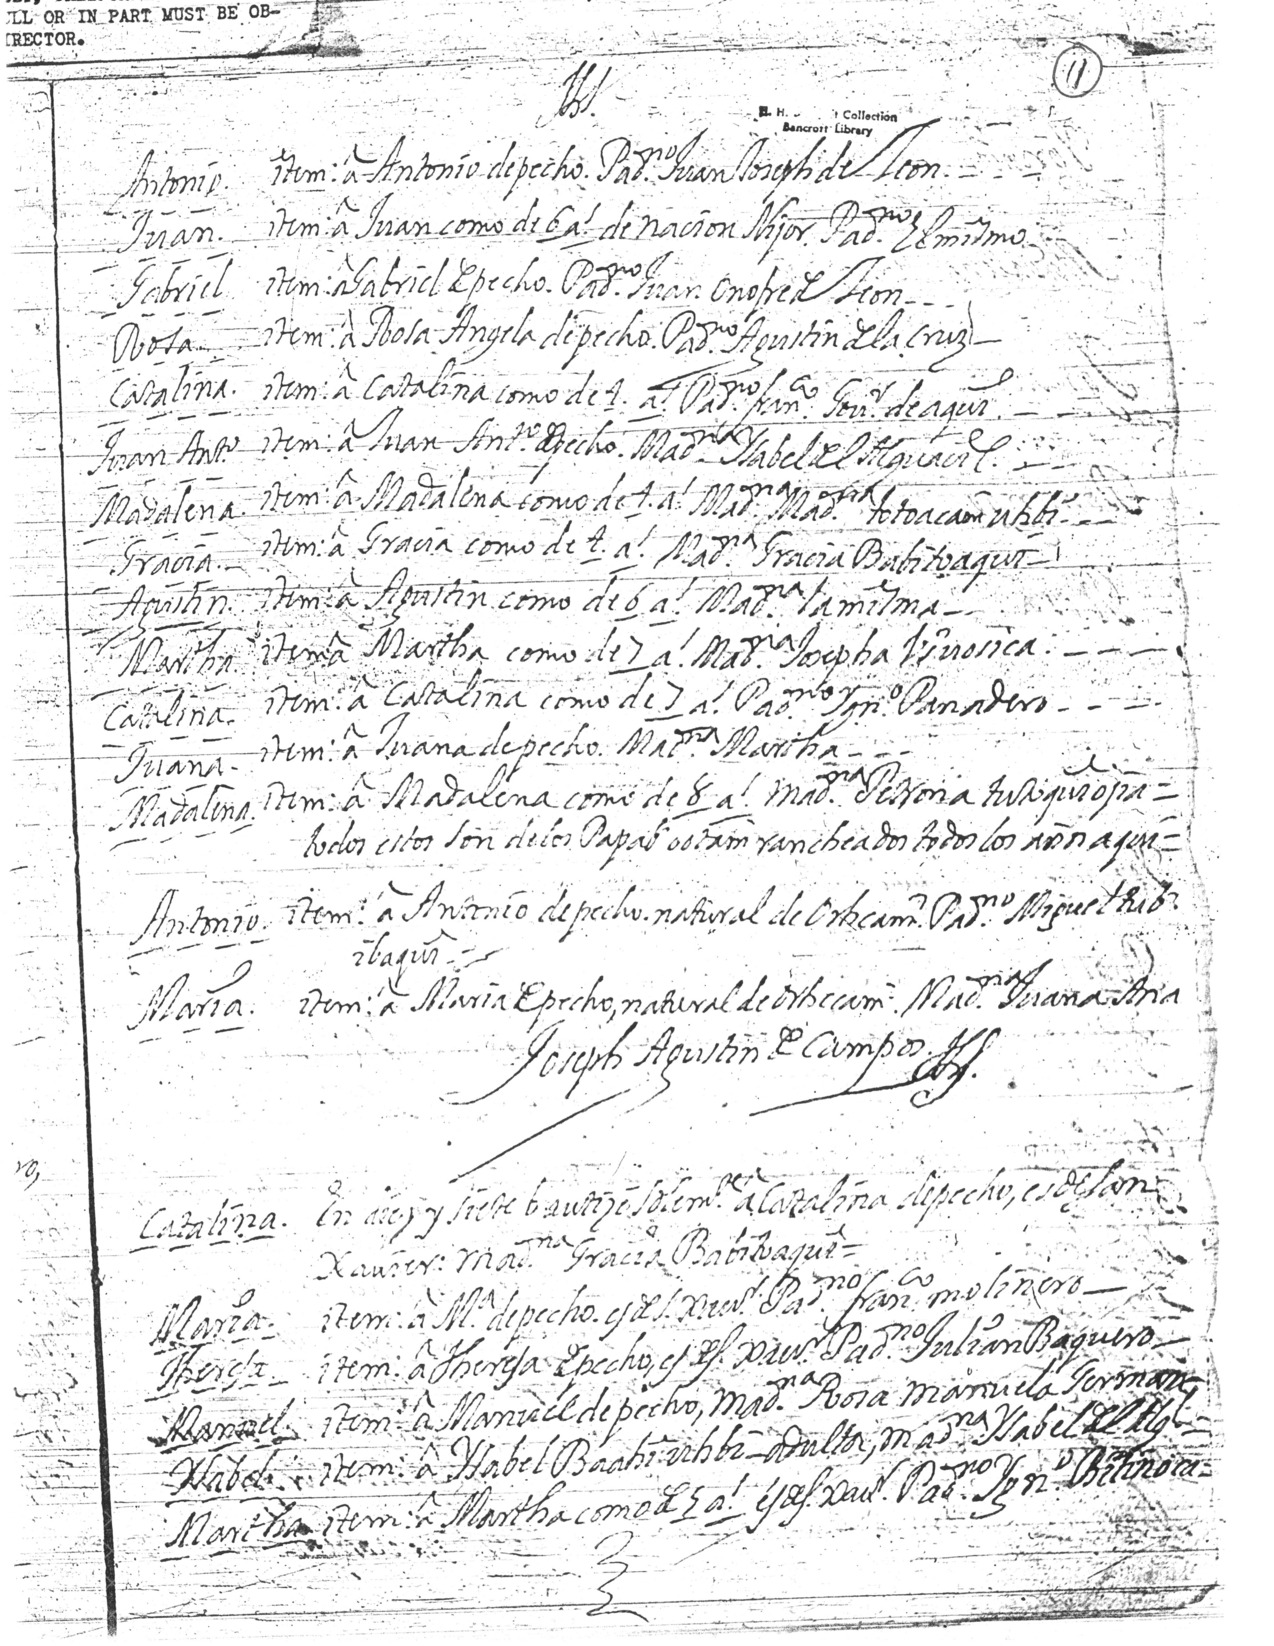 ULL OR IN PART MUST BE OB-
IRECTOR.
11
Jhs.
H. H. Collection
Bancroft Library
Antonio. item: â Antonio de pecho. Pad.no Juan Joseph de Leon.
Juan. item: â Juan como de 6 a.s de nacion Nijor. Pad.no el mismo
Gabriel item: â Gabriel de pecho. Pad.no Juan Onofre de Leon
Rosa item: â Rosa Angela de pecho. Pad.no Agustin de la Cruz
Catalina. item: â Catalina como de 4. a.s Pad.no fran.co Gov.r de aqui.
Juan Ant.o item: â Juan Ant.o de pecho. Mad.na Ysabel del Alguacil.
Madalena. item: â Madalena como de 4. a.s Mad.na
Gracia. item: â Gracia como de 4. a.s Mad.na Gracia Babitoaqui
Agustin. item: â Agustin como de 6 a.s Mad.na la misma
Martha item: â Martha como de 7 a.s Mad.na Josepha
Catalina. item: â Catalina como de 7 a.s Pad.no Ygn.o Panadero
Juana. item: â Juana de pecho. Mad.na Martha
Madalena. item: â Madalena como de 8 a.s Mad.na
todos estos son de los rancheados todos los años aqui
Antonio. item: â Antonio de pecho. natural de Orhcam. Pad.no Miguel tub-
ibaqui
Maria. item: â Maria de pecho, natural de Orhcam. Mad.na Juana Ana
Joseph Agustin de Campos. Jhs.
ro,
Catalina. En diez y siete bautize solem.te â Catalina de pecho, es de San
Xavier: Mad.na Gracia Babitoaqui
Maria. item: â M.a de pecho. es de S. Xav.r Pad.no fran.co molinero
Theresa item: â Theresa de pecho, es de S. Xav.r Pad.no Julian Baquero
Manuel item: â Manuel de pecho, Mad.na Rosa Manuela German
Ysabel. item: â Ysabel Baahiuhbi adulta, Mad.na Ysabel del Alg.l
Martha item: â Martha como de 5 a.s es de S. Xav.r Pad.no Ygn.o